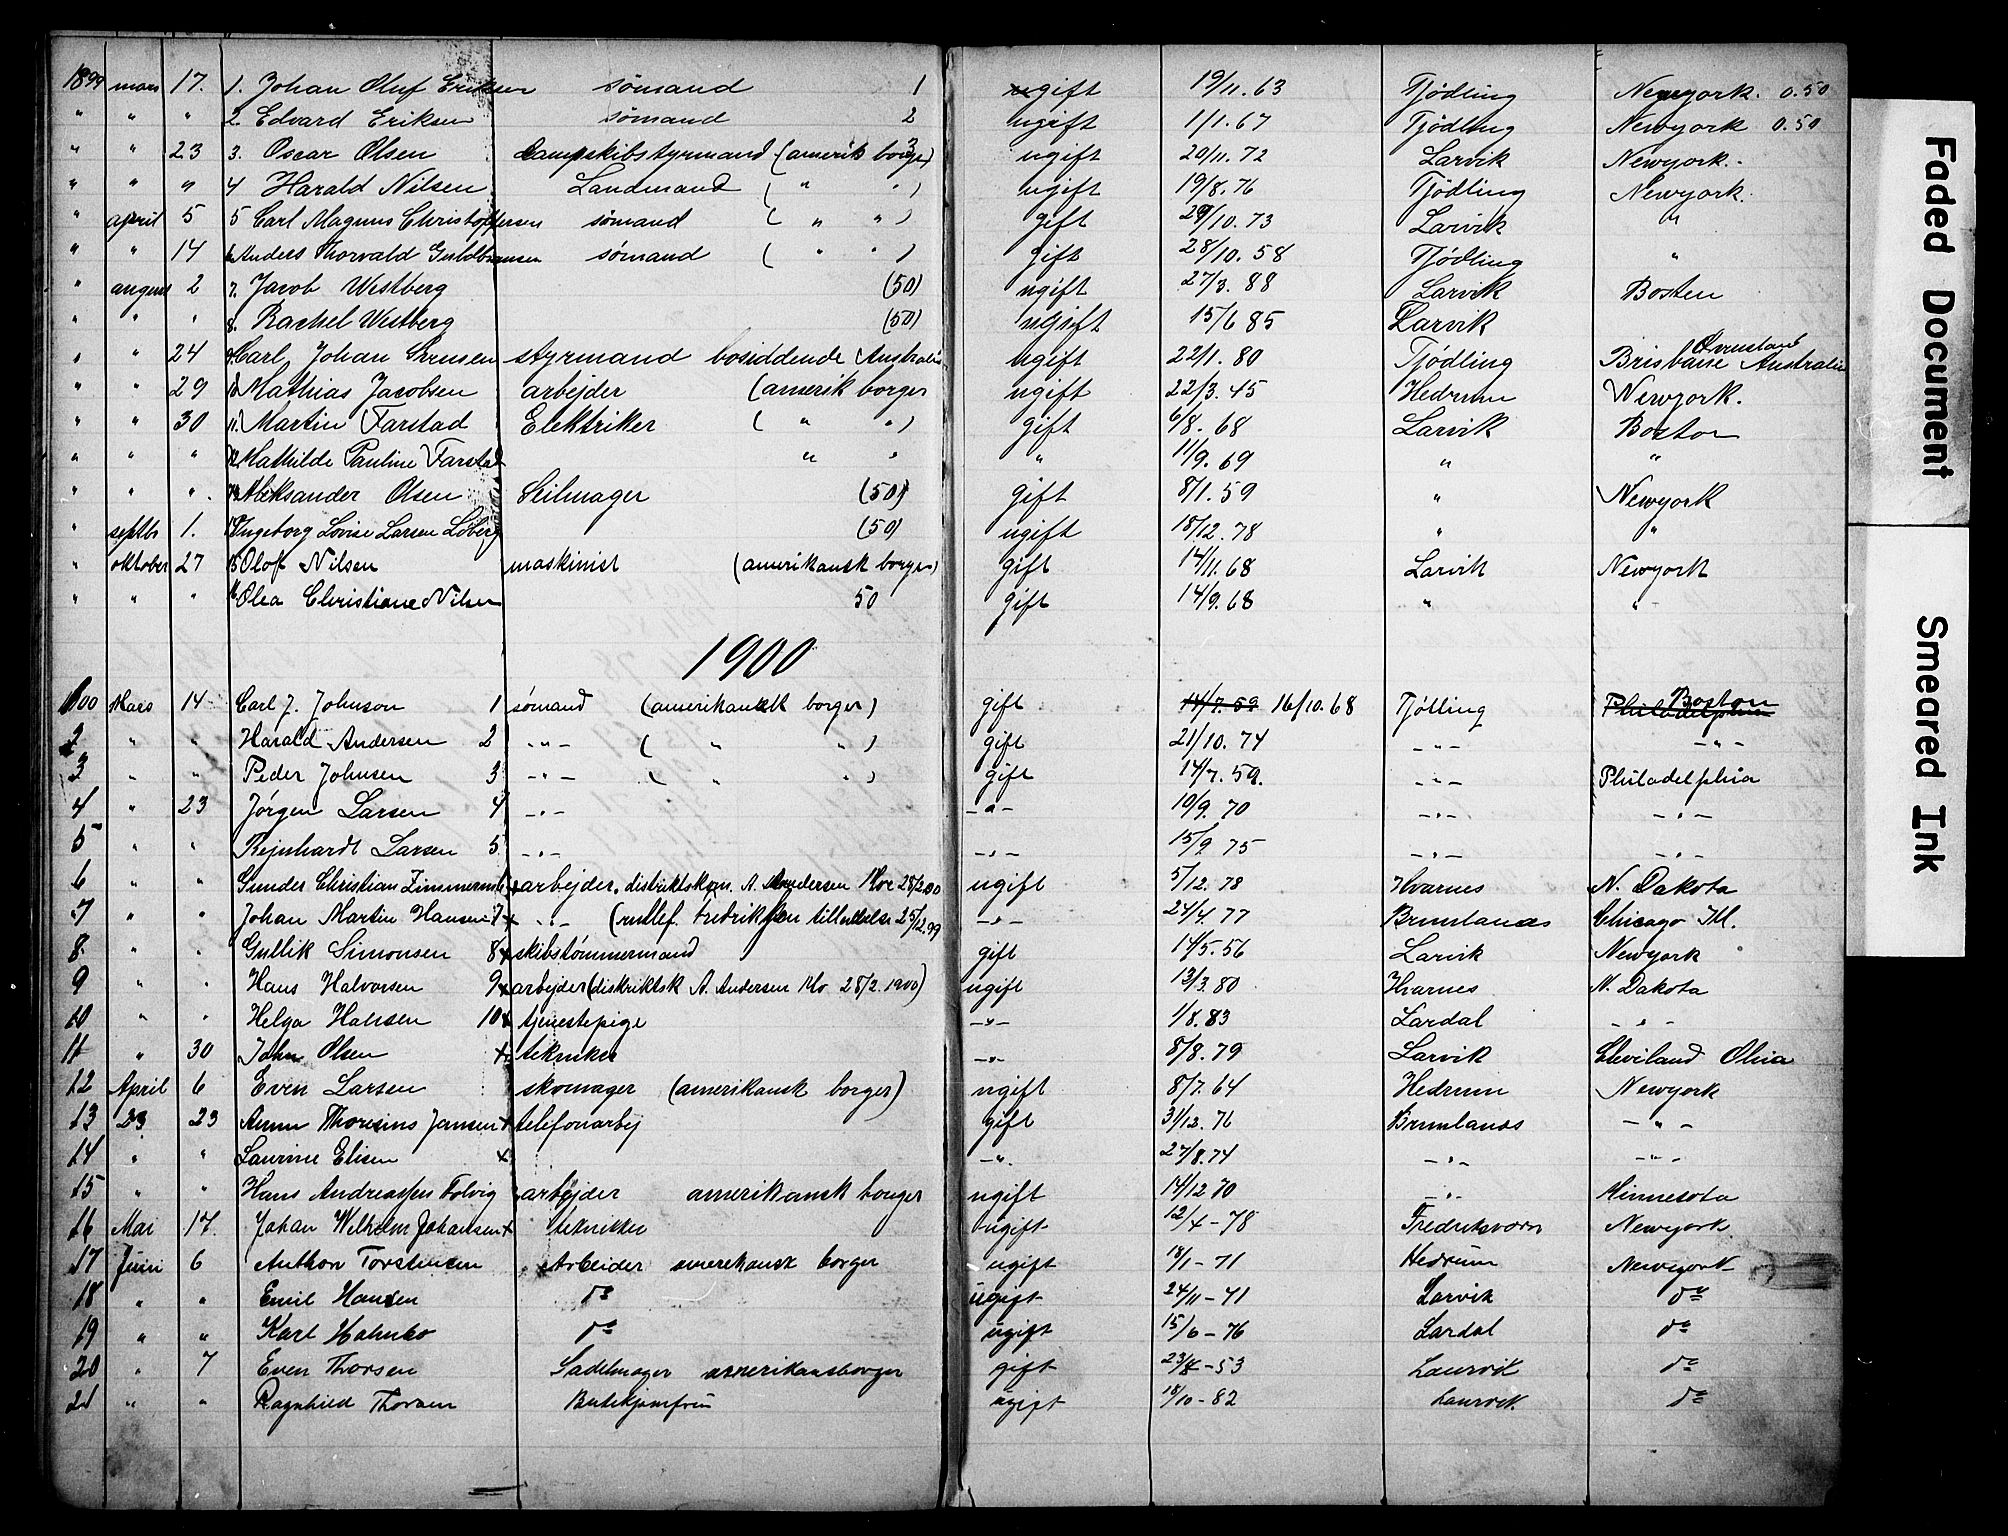 1899 mars 17. 1. Johan Oluf Eriksen sømand 1 ugift 19/11.63 Tjødling Newyork. 0.50
" " " 2. Edvard Eriksen sømand 2 ugift 1/1.67 Tjödling Newyork 0.50
" " 23 3. Oscar Olsen Dampskibstyrmand (amerik borger) 3 ugift 20/11.72 Larvik Newyork.
" " " 4 Harald Nilsen Landmand ( " " ) ugift 19/8.76 Tjödling Newyork.
" april 5 5 Carl Magnus Christophersen sømand ( " " ) gift 29/10.73 Larvik "
" " 14 6 Anders Thorvald Guldbransen sømand ( " " ) gift 28/10.58 Tjödling "
" august 2 7. Jacob Westberg (50) ugift 27/3.88 Larvik Bosten
" " " 8. Rachel Westberg (50) ugift 15/6 85 Larvik
" " 24 9 Carl Johan Sørensen styrmand bosiddende Australien ugift 22/1.80 Tjödling Brisbane Qvensland Australien
" " 29 10 Mathias Jacobsen arbejder (amerik borger ugift 22/3.45 Hedrum Newyork.
" " 30 11 Martin Farstad Elektriker ( " " ) gift 6/8.68 Larvik Boston
" " " 12 Mathilde Pauline Farstad " " " 11/9.69 " "
" " " 13 Aleksander Olsen Seilmager (50) gift 8/1.59 " Newyork
" septbr 1. 14 Ingeborg Lovise Larsen Loberg (50) ugift 18/12.78 " "
" oktober 27 15 Olof Nilsen maskinist (amerikansk borger) gift 14/11.68 Larvik Newyork
" " " 16 Olea Christiane Nilsen 50 gift 14/9.68 " "
1900
1900 Mars 14 Carl J. Johnson 1 sømand (amerikansk borger) gift 14/7.59 16/10.68 Tjölling Philadelphia Boston
2 " " Harald Andersen 2 -"- ( " " ) gift 21/10.74 -"- -"-
3 " " Peder Johnsen 3 -"- ( " " ) gift 14/7.59. -"- Philadelphia
4 " 23 Jörgen Larsen 4 -"- -"- 10/9.70 -"- -"-
5 " " Rejnhardt Larsen 5 -"- -"- 15/9.75 -"- -"-
6 " " Gunder Christian Zimmerm 6 + arbejder, distriktskom. A. Andersen Moe 28/2.00 ugift 5/12.78 Hvarnes N. Dakota
7 " " Johan Martin Hansen 7 + -"- 25/12.99 -"- 24/4.77 Brunlanæs Chicago Ill.
8. " " Gullik Simonsen 8 + skibstømmermand gift 14/5.56 Larvik Newyork
9 " " Hans Halvorsen 9 + arbejder (distriktsk A. Andersen Mo 28/2.1900) ugift 13/3.80 Hvarnes N. Dakota
10 " " Helga Hansen 10 + tjenestepige -"- 1/8.83 Lardal -"-
11 " 30 John Olsen + tekniker -"- 8/8.79 Larvik Cleviland Ohio
12 April 6 Even Larsen skomager (amerikansk borger) ugift 8/7.64 Hedrum Newyork
13 23 23 Anmn Thoresius Jansen + telefonarbej gift 31/12.76 Brunlanæs -"-
14 " " Laurine Elisen + -"- 27/8.74 -"- -"-
15 " " Hans Andreassen Folvig arbejder amerikansk borger ugift 14/12 70 -"- Minnesota
16 Mai 17. Johan Wilhelm Johansen + tekniker ugift 12/4-78 Fredriksværn Newyork
17 Juni 6 Anthon Torstensen Arbeider amerikansk borger ugift 18/1-71 Hedrum Newyork
18 " " Emil Hansen do ugift 24/11-71 Larvik do
19 " " Karl Hahnbo do ugift 15/6-76 Lardal do
20 " 7 Even Thorsen Sadelmager amerikansborger gift 23/8-53 Laurvik do
21 " " Ragnhild Thorsen Butikjomfru ugift 18/10-82 Laurvik. do
Faded Document
Smeared Ink